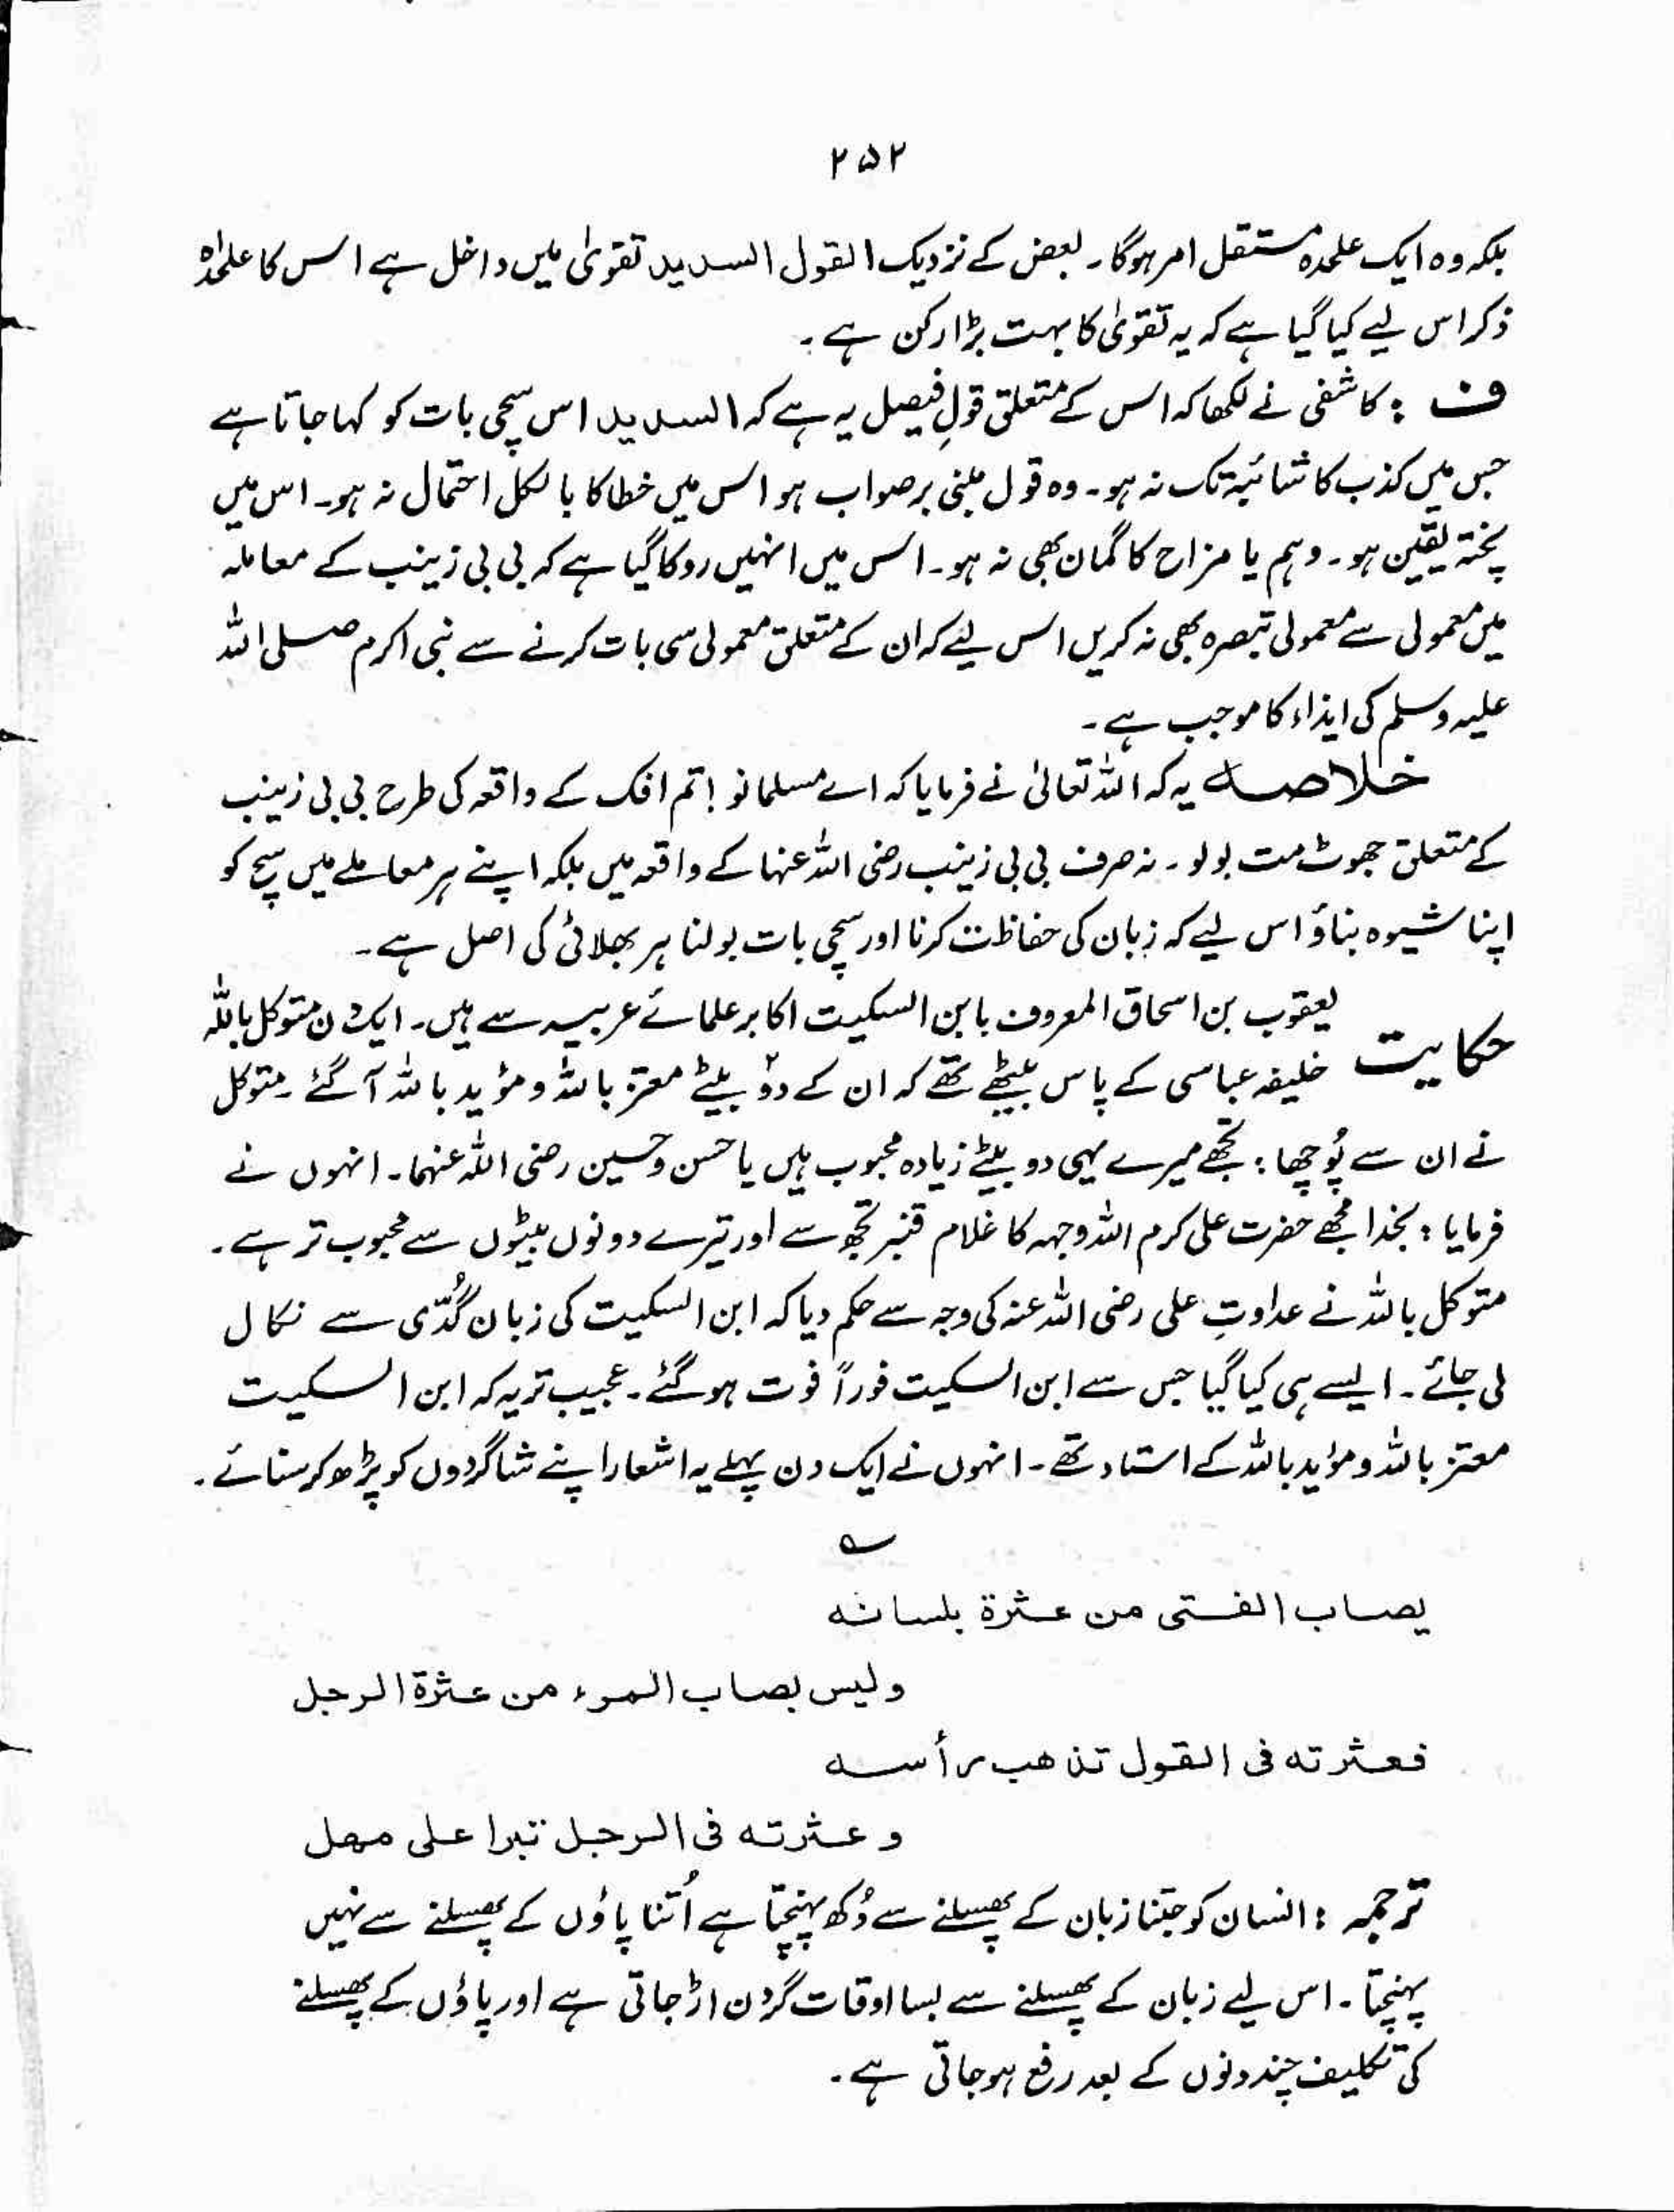 ۲۵۲
بلکہ وہ ایک علٰحدہ مستقل امر ہوگا۔ بعض کے نزدیک القول السدید تقویٰ میں داخل ہے اس کا علٰحدہ
ذکر اس لیے کیا گیا ہے کہ یہ تقویٰ کا بہت بڑا رکن ہے۔
ف : کاشفی نے لکھا کہ اس کے متعلق قولِ فیصل یہ ہے کہ السدید اس سچی بات کو کہا جاتا ہے
جس میں کذب کا شائبہ تک نہ ہو۔ وہ قول مبنی برصواب ہو اس میں خطا کا بالکل احتمال نہ ہو۔ اس میں
پختہ یقین ہو۔ وہم یا مزاح کا گمان بھی نہ ہو۔ اس میں انہیں روکا گیا ہے کہ بی بی زینب کے معاملہ
میں معمولی سے معمولی تبصرہ بھی نہ کریں اس لیے کہ ان کے متعلق معمولی سی بات کرنے سے نبی اکرم صلی اللہ
علیہ وسلم کی ایذاء کا موجب ہے۔
خلاصہ یہ کہ اللہ تعالیٰ نے فرمایا کہ اے مسلمانو ! تم افک کے واقعہ کی طرح بی بی زینب
کے متعلق جھوٹ مت بولو۔ نہ صرف بی بی زینب رضی اللہ عنہا کے واقعہ میں بلکہ اپنے ہر معاملے میں سچ کو
اپنا شیوہ بناؤ اس لیے کہ زبان کی حفاظت کرنا اور سچی بات بولنا ہر بھلائی کی اصل ہے۔
حکایت یعقوب بن اسحاق المعروف بابن السکیت اکابر علمائے عربیہ سے ہیں۔ ایک دن متوکل باللہ
خلیفہ عباسی کے پاس بیٹھے تھے کہ ان کے دو بیٹے معتز باللہ و مؤید باللہ آگئے۔ متوکل
نے ان سے پُوچھا : تجھے میرے یہی دو بیٹے زیادہ محبوب ہیں یا حسن و حسین رضی اللہ عنہما۔ انہوں نے
فرمایا : بخدا مجھے حضرت علی کرم اللہ وجہہ کا غلام قنبر تجھ سے اور تیرے دونوں بیٹوں سے محبوب تر ہے۔
متوکل باللہ نے عداوتِ علی رضی اللہ عنہ کی وجہ سے حکم دیا کہ ابن السکیت کی زبان گُدّی سے نکال
لی جائے۔ ایسے ہی کیا گیا جس سے ابن السکیت فوراً فوت ہوگئے۔ عجیب تر یہ کہ ابن السکیت
معتز باللہ و مؤید باللہ کے استاد تھے۔ انہوں نے ایک دن پہلے یہ اشعار اپنے شاگردوں کو پڑھ کر سنائے۔
؎
یصاب الفتی من عثرة بلسانه
ولیس یصاب المرء من عثرة الرجل
فعثرته فی القول تذهب رأسه
و عثرته فی الرجل تبرا علی مهل
ترجمہ : انسان کو جتنا زبان کے پھسلنے سے دُکھ پہنچتا ہے اُتنا پاؤں کے پھسلنے سے نہیں
پہنچتا۔ اس لیے زبان کے پھسلنے سے بسا اوقات گردن اڑ جاتی ہے اور پاؤں کے پھسلنے
کی تکلیف چند دنوں کے بعد رفع ہوجاتی ہے۔